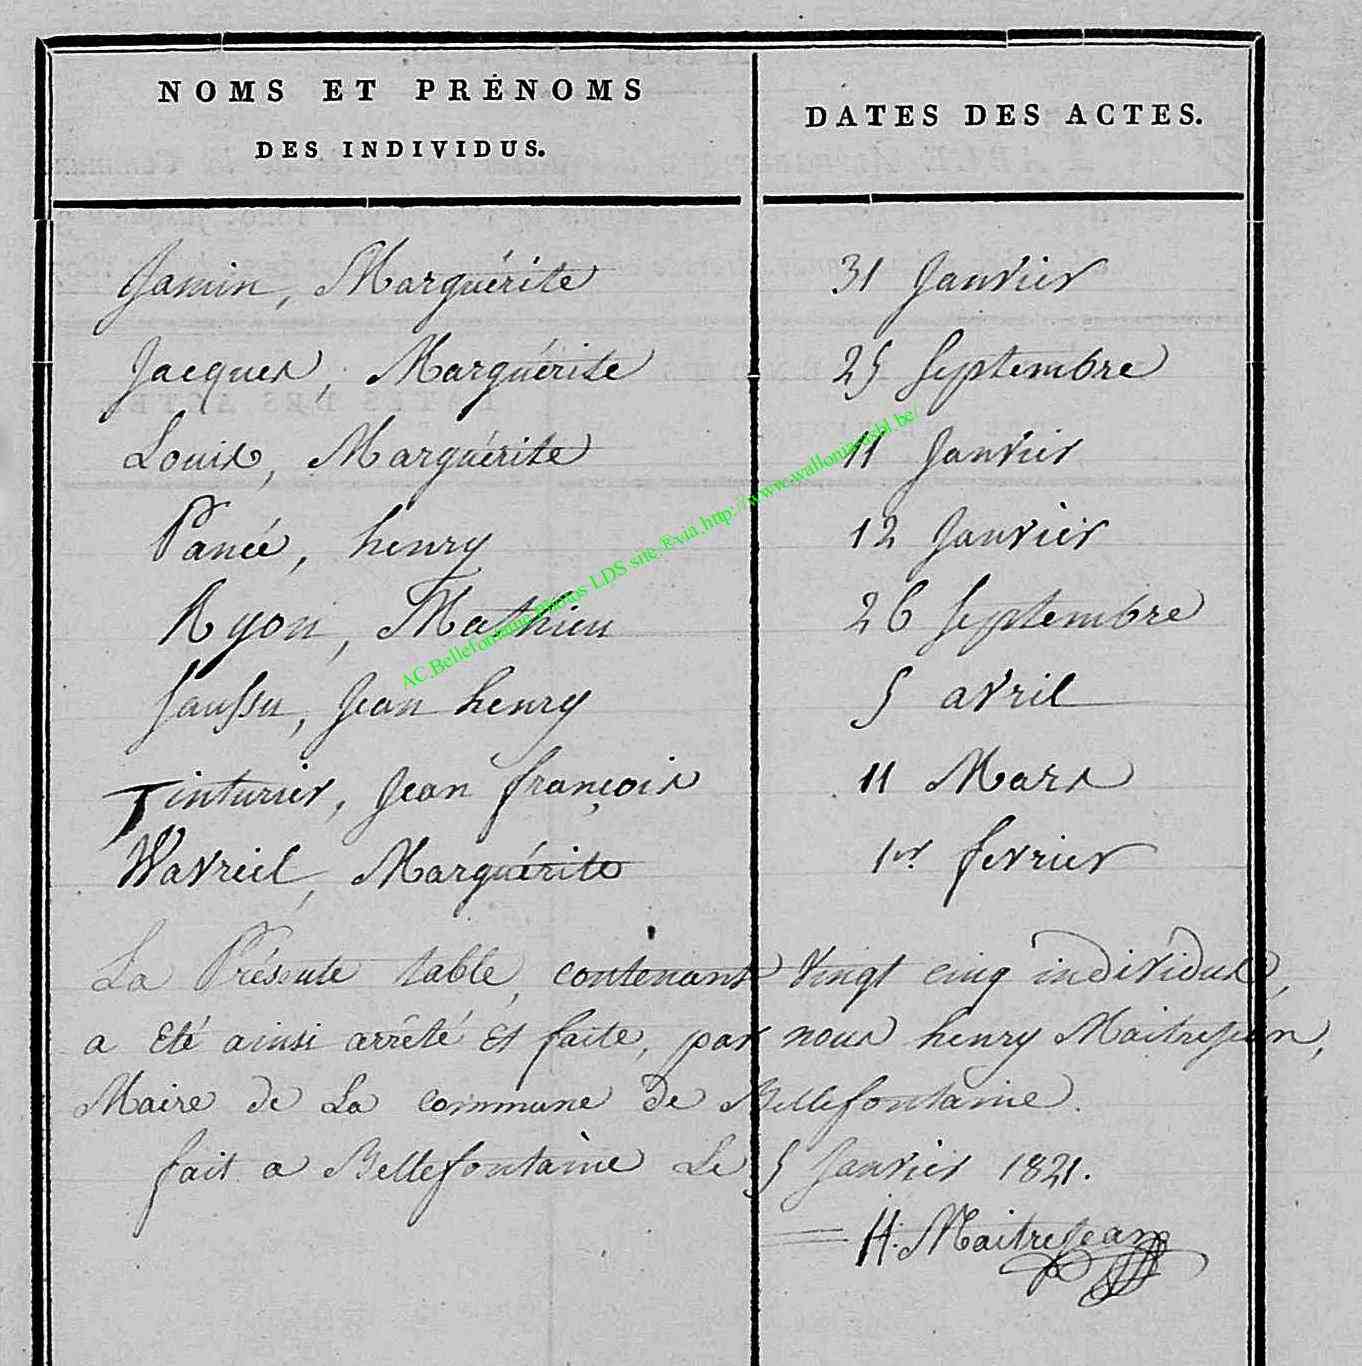 NOMS ET PRÉNOMS
DES INDIVIDUS.
DATES DES ACTES.
Jamin, Marguérite 31 Janvier
Jacques, Marguérite 25 Septembre
Louis, Marguérite 11 Janvier
Panée, henry 12 Janvier
Ryon, Mathieu 26 Septembre
Saussu, Jean henry 5 avril
Tinturier, Jean françois 11 Mars
Wavreil, Marguérite 1er fevrier
La Présente table, contenant vingt cinq individus,
a été ainsi arrêté et faite, par nous henry Maitrejean,
Maire de La commune de Bellefontaine.
fait a Bellefontaine Le 5 Janvier 1821.
H: Maitrejean
AC.Bellefontaine.Photos LDS site.Evia.http://www.wallonia-asbl.be/